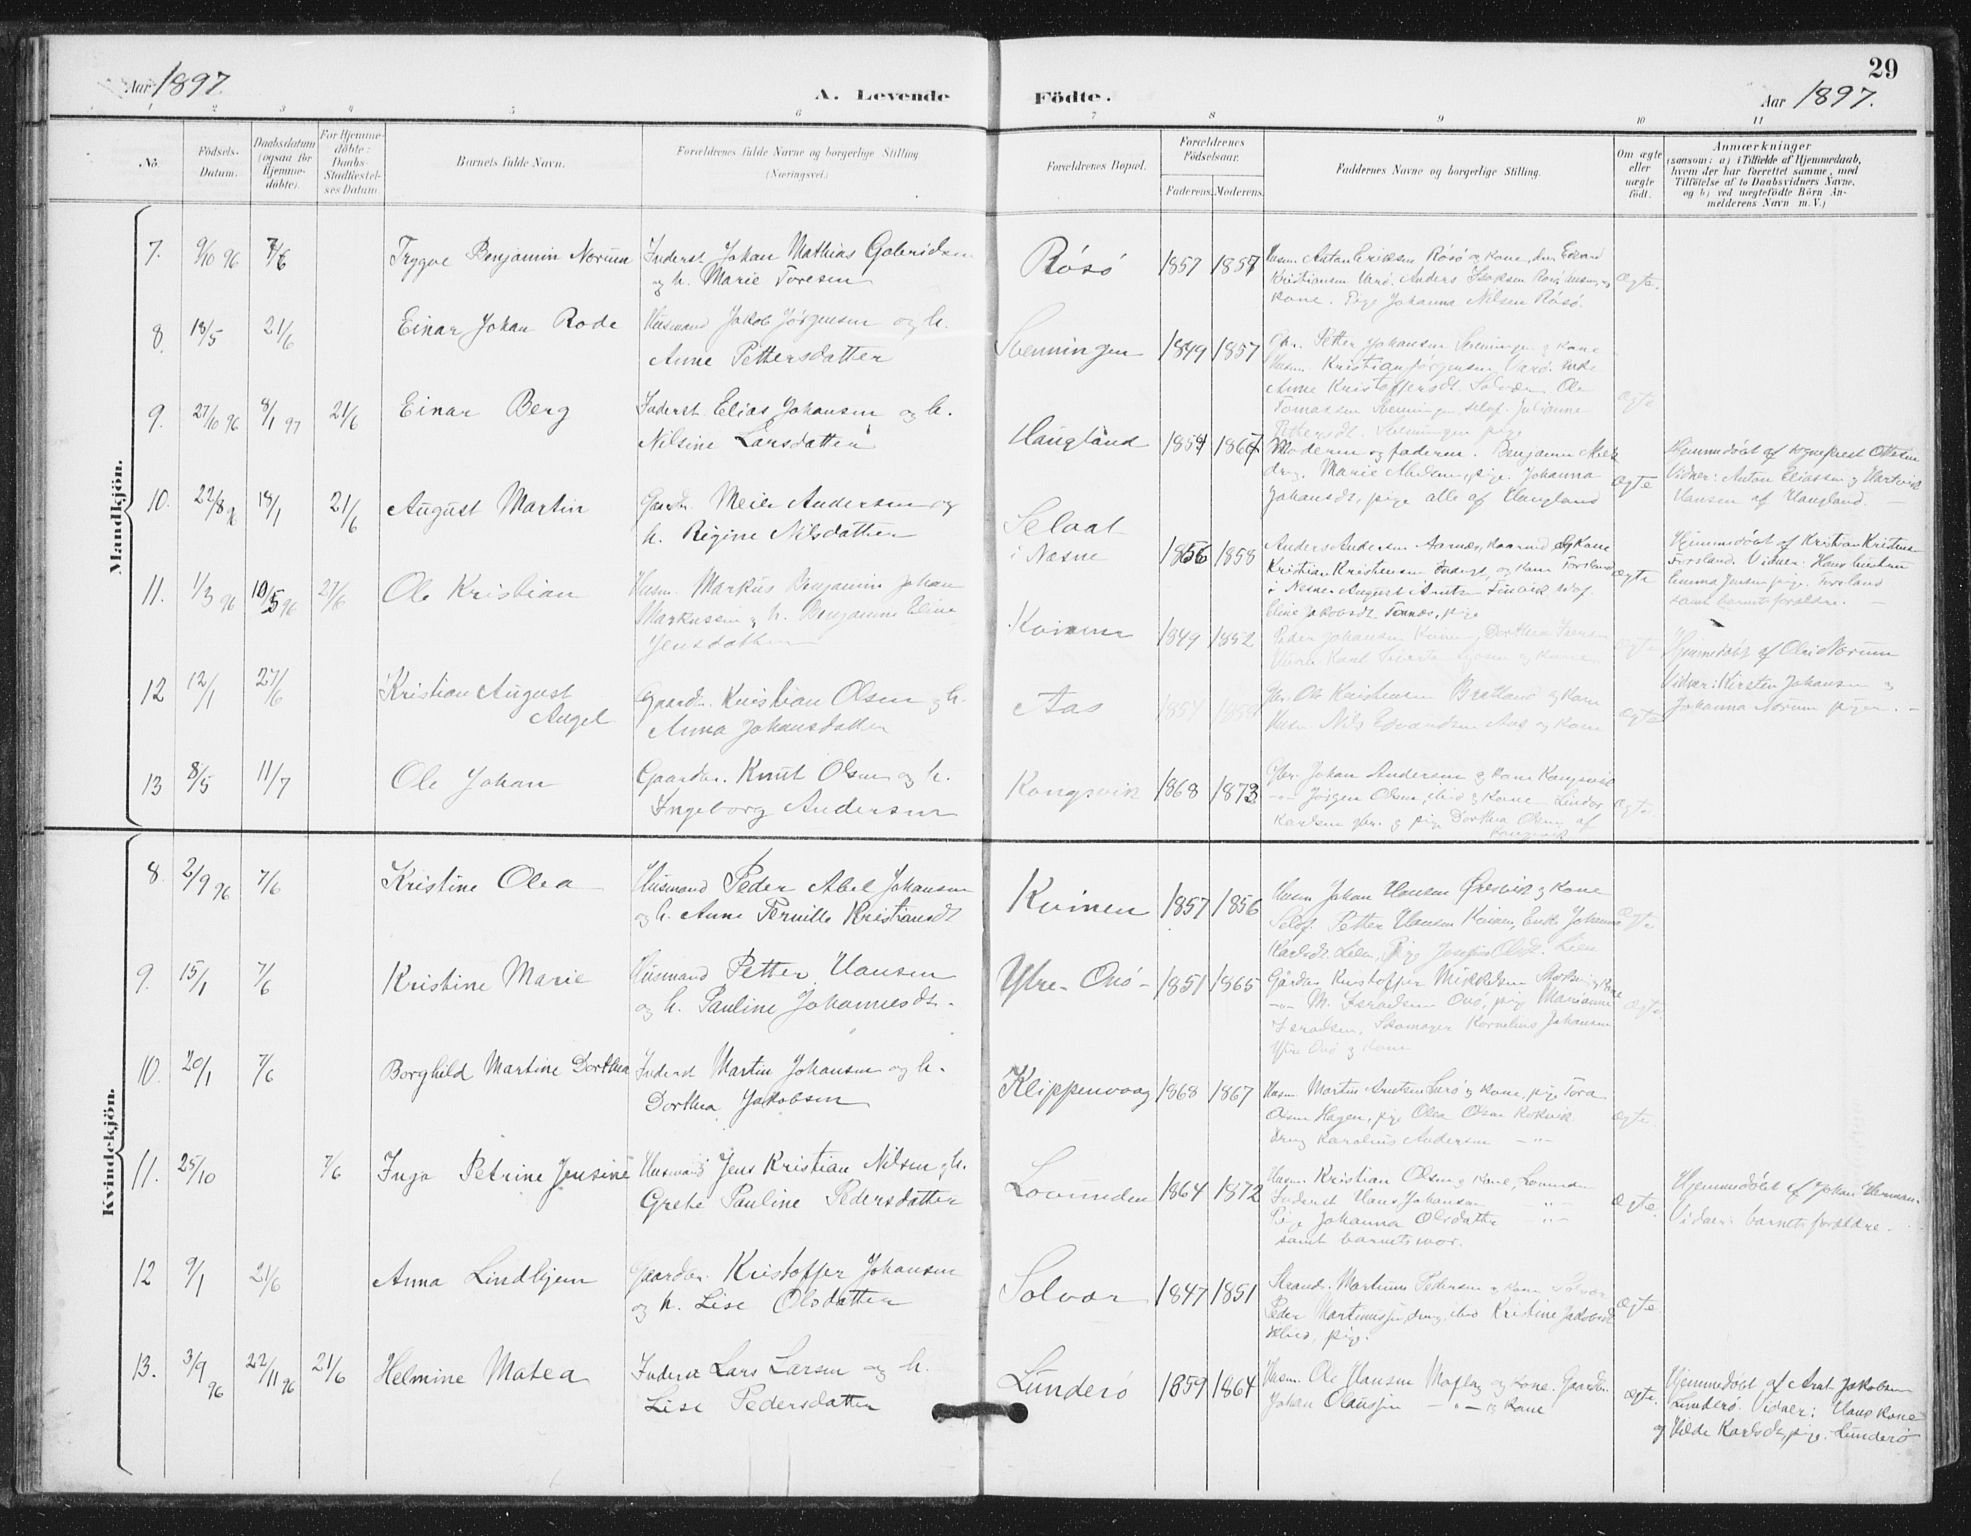 Aar 1897
A. Levende
Födte.
29
Aar 1897.
1 2 3 4 5 6 7 8 9 10 11
No
Födsels-
Datum.
Daabsdatum
(ogsaa for
Hjemme-
döbte).
For Hjemme-
döbte:
Daabs-
Stadfæstel-
ses Datum
Barnets fulde Navn.
Forældrenes fulde Navne og borgerlige Stilling
(Næringsvei.)
Forældrenes Bopæl.
Forældrenes
Födselsaar.
Faderens.
Moderens.
Faddernes Navne og borgerlige Stilling.
Om ægte
eller
uægte
födt.
Anmærkninger
(saasom: a) i Tilfælde af Hjemmedaab,
hvem der har forrettet samme, med
Tilföielse af to Daabsvidners Navne,
og b) ved uægtefödte Börn An-
melderens Navn m. V.)
Mandkjön.
7. 9/10 96 7/6 Trygve Benjamin Norum Inderst Johan Mathias Gabrielsen
og h. Marie Toresen
Rósó 1857 1857 Husm. Anton Eriksen Rósó og kone
Kristiansen Varó. Anders Isaksen
kone. Pige Johanna Nilsen Rósó.
ægte.
8. 18/5 21/6 Einar Johan Rode Husmand Jakob Jørgensen og h.
Anne Pettersdatter
Svenningen 1849 1857 Gbr. Petter Johansen Svenningen og kone
Husm. Kristian Jørgensen Varó. Enke
Anne Kristoffersdt. Solvær Ole
Tomassen Svenningen, selvf. Julianne
Pettersdt. Svenningen pige
ægte
9. 27/10 96 8/1 97 21/6 Einar Berg Inderst. Elias Johansen og h.
Nilsine Larsdatter
Haugland 1859 1867 Moderen og faderen. Benjamin
dreng. Marie Nielsen, pige. Johanna
Johansdt, pige alle af Haugland
ægte
Hjemmedöbt af sogneprest Ottesen
Vidner: Anton Eliassen og Hartvik
Hansen af Haugland.
10. 22/8 96 18/1 21/6 August Martin Gaardb. Meier Andersen og
h. Regine Nilsdatter
Selvaat
i Næsne 1856 1858 Anders Andersen Aarnæs, kaarmd og kone
Kristian Kristensen Inderst, og kone Forsland
i Nesne August Arntsen Finvik selvf.
Eline Jakobsdt. Tonnes, pige
ægte
Hjemmedöbt af Kristian Kristensen
Forsland. Vidner: Hans
Emma Jensen pige. Forsland
samt barnets forældre.
11. 1/3 96 10/5 96 21/6 Ole Kristian Husm. Markus Benjamin Johan
Markussen og h. Benjamine Eline
Jensdatter
Kvinen 1849 1852 Peder Johansen Kvinen, Dorthea
ægte
Hjemmedöbt af Norum
Vidner: Kirsten Johansen og
Johanna Norum piger.
12 12/1 27/6 Kristian August
Angel Gaardb. Kristian Olsen og h.
Anna Johansdatter
Aas 1854 1859 Gbr. Ole Kristensen og kone
Husm. Nils Edvardsen Aas og kone
ægte
13 8/5 11/7 Ole Johan Gaardbr. Knut Olsen og h.
Ingeborg Andersen
Kongsvik 1868 1873 Gbr. Johan Andersen og kone Kongsvik
-"- Jørgen Olsen, ibid og kone
Karlsen gbr. og pige Dorthea Olsen af
Kongsvik
ægte.
Kvindekjön.
8. 2/9 96 7/6 Kristine Olea Husmand Peder Abel Johansen
og h. Anne Pernille Kristiansdt
Kvinen 1857 1856 Husm Johan Hansen Øresvik og kone
Selvf. Petter Hansen Kvinen, Enke Johanna
Karlsdt. Leen, Pige Olsdt. Leen
ægte
9. 15/1 7/6 Kristine Marie Husmand Petter Hansen
og h. Pauline Johannesdt.
Ytre-Onó 1851 1865 Gårdbr. Kristoffer Mikkelsen og kone
-"- M. Israelsen Onó, pige Marianne
Israelsen, Skomager Kornelius Johansen
Ytre Onó og kone
ægte.
10. 20/1 7/6 Borghild Martine Dorthea Inderst Martin Johansen og h.
Dorthea Jakobsen
Klippenvaag 1868 1867 Husm. Martin Arntsen Luró og kone, pige Tora
Hagen, pige Olea Olsen Kokvik
dreng Karolius Andersen -"-
ægte
11. 25/10 7/6 Inga Petrine Jensine Husmand Jens Kristian Nilsen og h.
Grethe Pauline Pedersdatter
Lovunden 1864 1872 Husm. Kristian Olsen og kone, Lovunden
Inderst Hans Johansen -"-
Pige Johanna Olsdatter -"-
samt barnets mor.
ægte.
Hjemmedöbt af Johan Herman.
Vidner: barnets forældre.
12 9/1 21/6 Anna Lindhjem Gaardbr. Kristoffer Johansen
og h. Lise Olsdatter
Solvær 1847 1851 Strands. Martinus Pedersen og kone Solvær
Peder Martinussen, dreng, ibid Kristine Jakobsdt
ibid, pige.
ægte
13. 3/9 96 22/11 96 21/6 Helmine Matea Inderst Lars Larsen og h.
Lise Pedersdatter
Lunderó 1859 1864 Husm. Ole Hansen Moflag og kone. Gaardbr.
Johan Olaussen -"- og kone
ægte.
Hjemmedöbt af Arnt Jakobsen
Lunderó. Vidner: Hans kone
og Hilde Karlsdt, pige. Lunderó